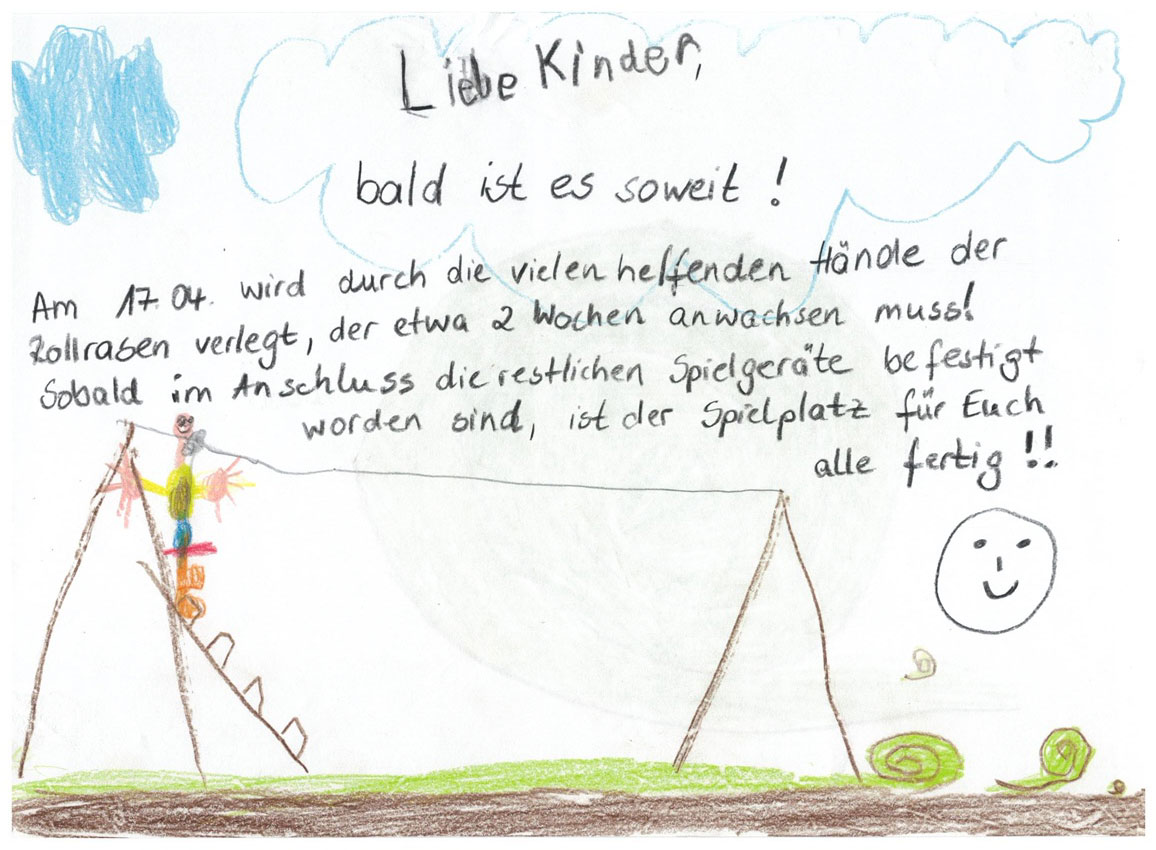 Liebe Kinder,
bald ist es soweit !
Am 17.04. wird durch die vielen helfenden Hände der
Rollrasen verlegt, der etwa 2 Wochen anwachsen muss!
Sobald im Anschluss die restlichen Spielgeräte befestigt
worden sind, ist der Spielplatz für Euch
alle fertig !!